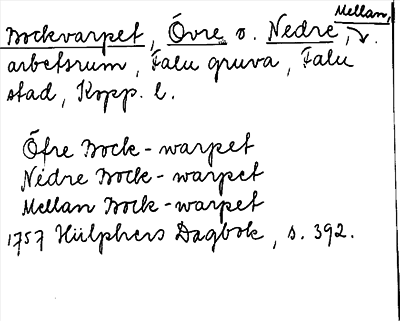 Mellan,
Bockvarpet, Övre o. Nedre,
arbetsrum, Falu gruva, Falu
stad, Kopp. l.
Öfre Bock-warpet
Nedre Bock-warpet
Mellan Bock-warpet
1757 Hülphers Dagbok, s. 392.